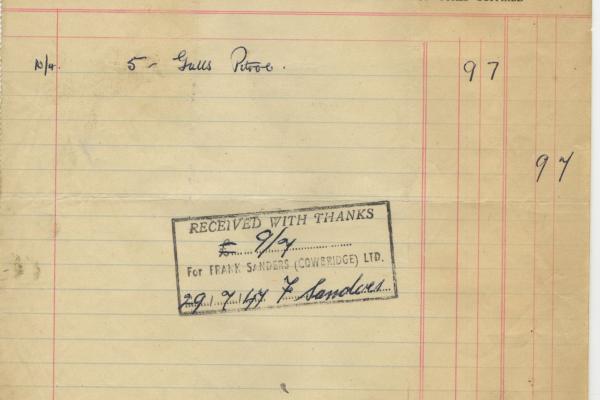 10/4. 5 - Galls Petrol. 9 7
9 7
RECEIVED WITH THANKS
£ 9/7
For FRANK SANDERS (COWBRIDGE) LTD.
29/7/47 F Sanders